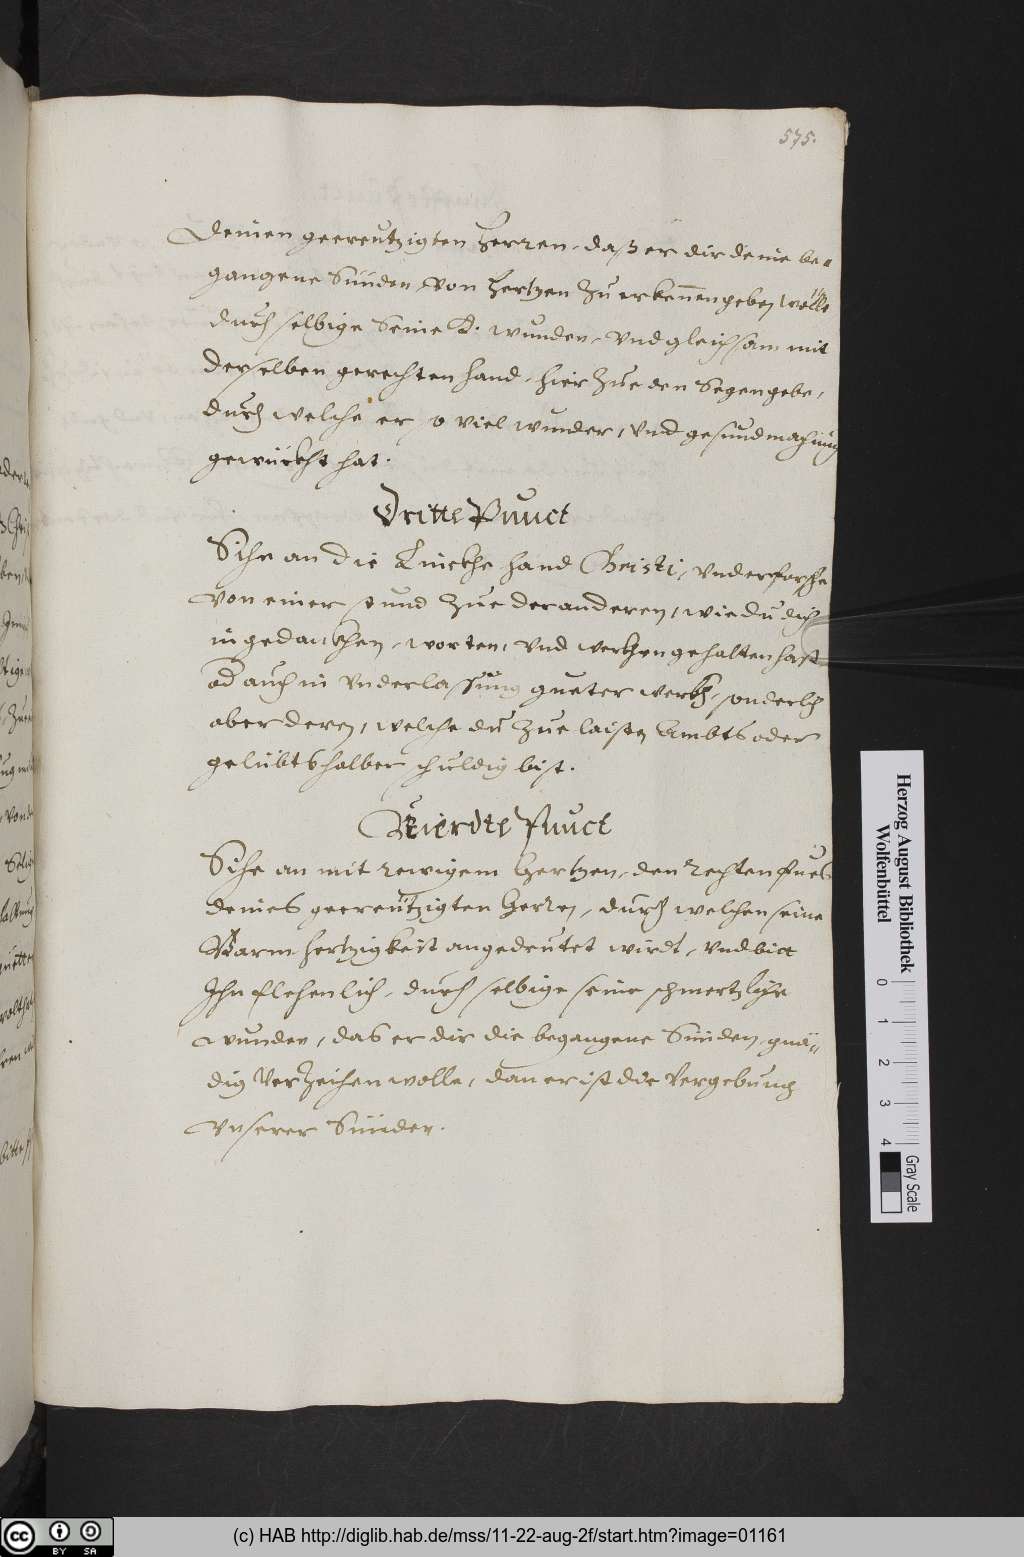 575.
Deinen gecreutzigten Herren, daß er dir deine be-
gangene Sünden von Hertzen zu erkennen geben wölle
durch selbige Seine H. wunden, vnd gleichsam mit
derselben gerechten hand, hier Zue den Segen gebe,
durch welche er so viel wunder, vnd gesundmachung
gewürckht hat.
Dritte Punct
Sihe an die Linckhe hand Christi, vnd erforsche
von einer stund Zue der anderen, wie du dich
in gedanckhen, worten, vnd werckhen gehalten hast
od auch in vnderlassung gueter werckh, sonderlich
aber deren, welche du Zue laisten Ambts oder
gelübts halber schuldig bist.
Vierdte Punct
Sihe an mit rewigem Hertzen, den rechten fues
deines gecreützigten Herren, durch welchen seine
Barmhertzigkeit angedeutet würdt, vnd bitt
Ihn flehenlich, durch selbige seine schmertzliche
wunden, das er dir die begangene Sünden, gnä-
dig Verzeihen wolle, dan er ist die Vergebung
Vnserer Sünden.
Herzog August Bibliothek
Wolfenbüttel
0 1 2 3 4
Gray Scale
cc BY SA
(c) HAB http://diglib.hab.de/mss/11-22-aug-2f/start.htm?image=01161